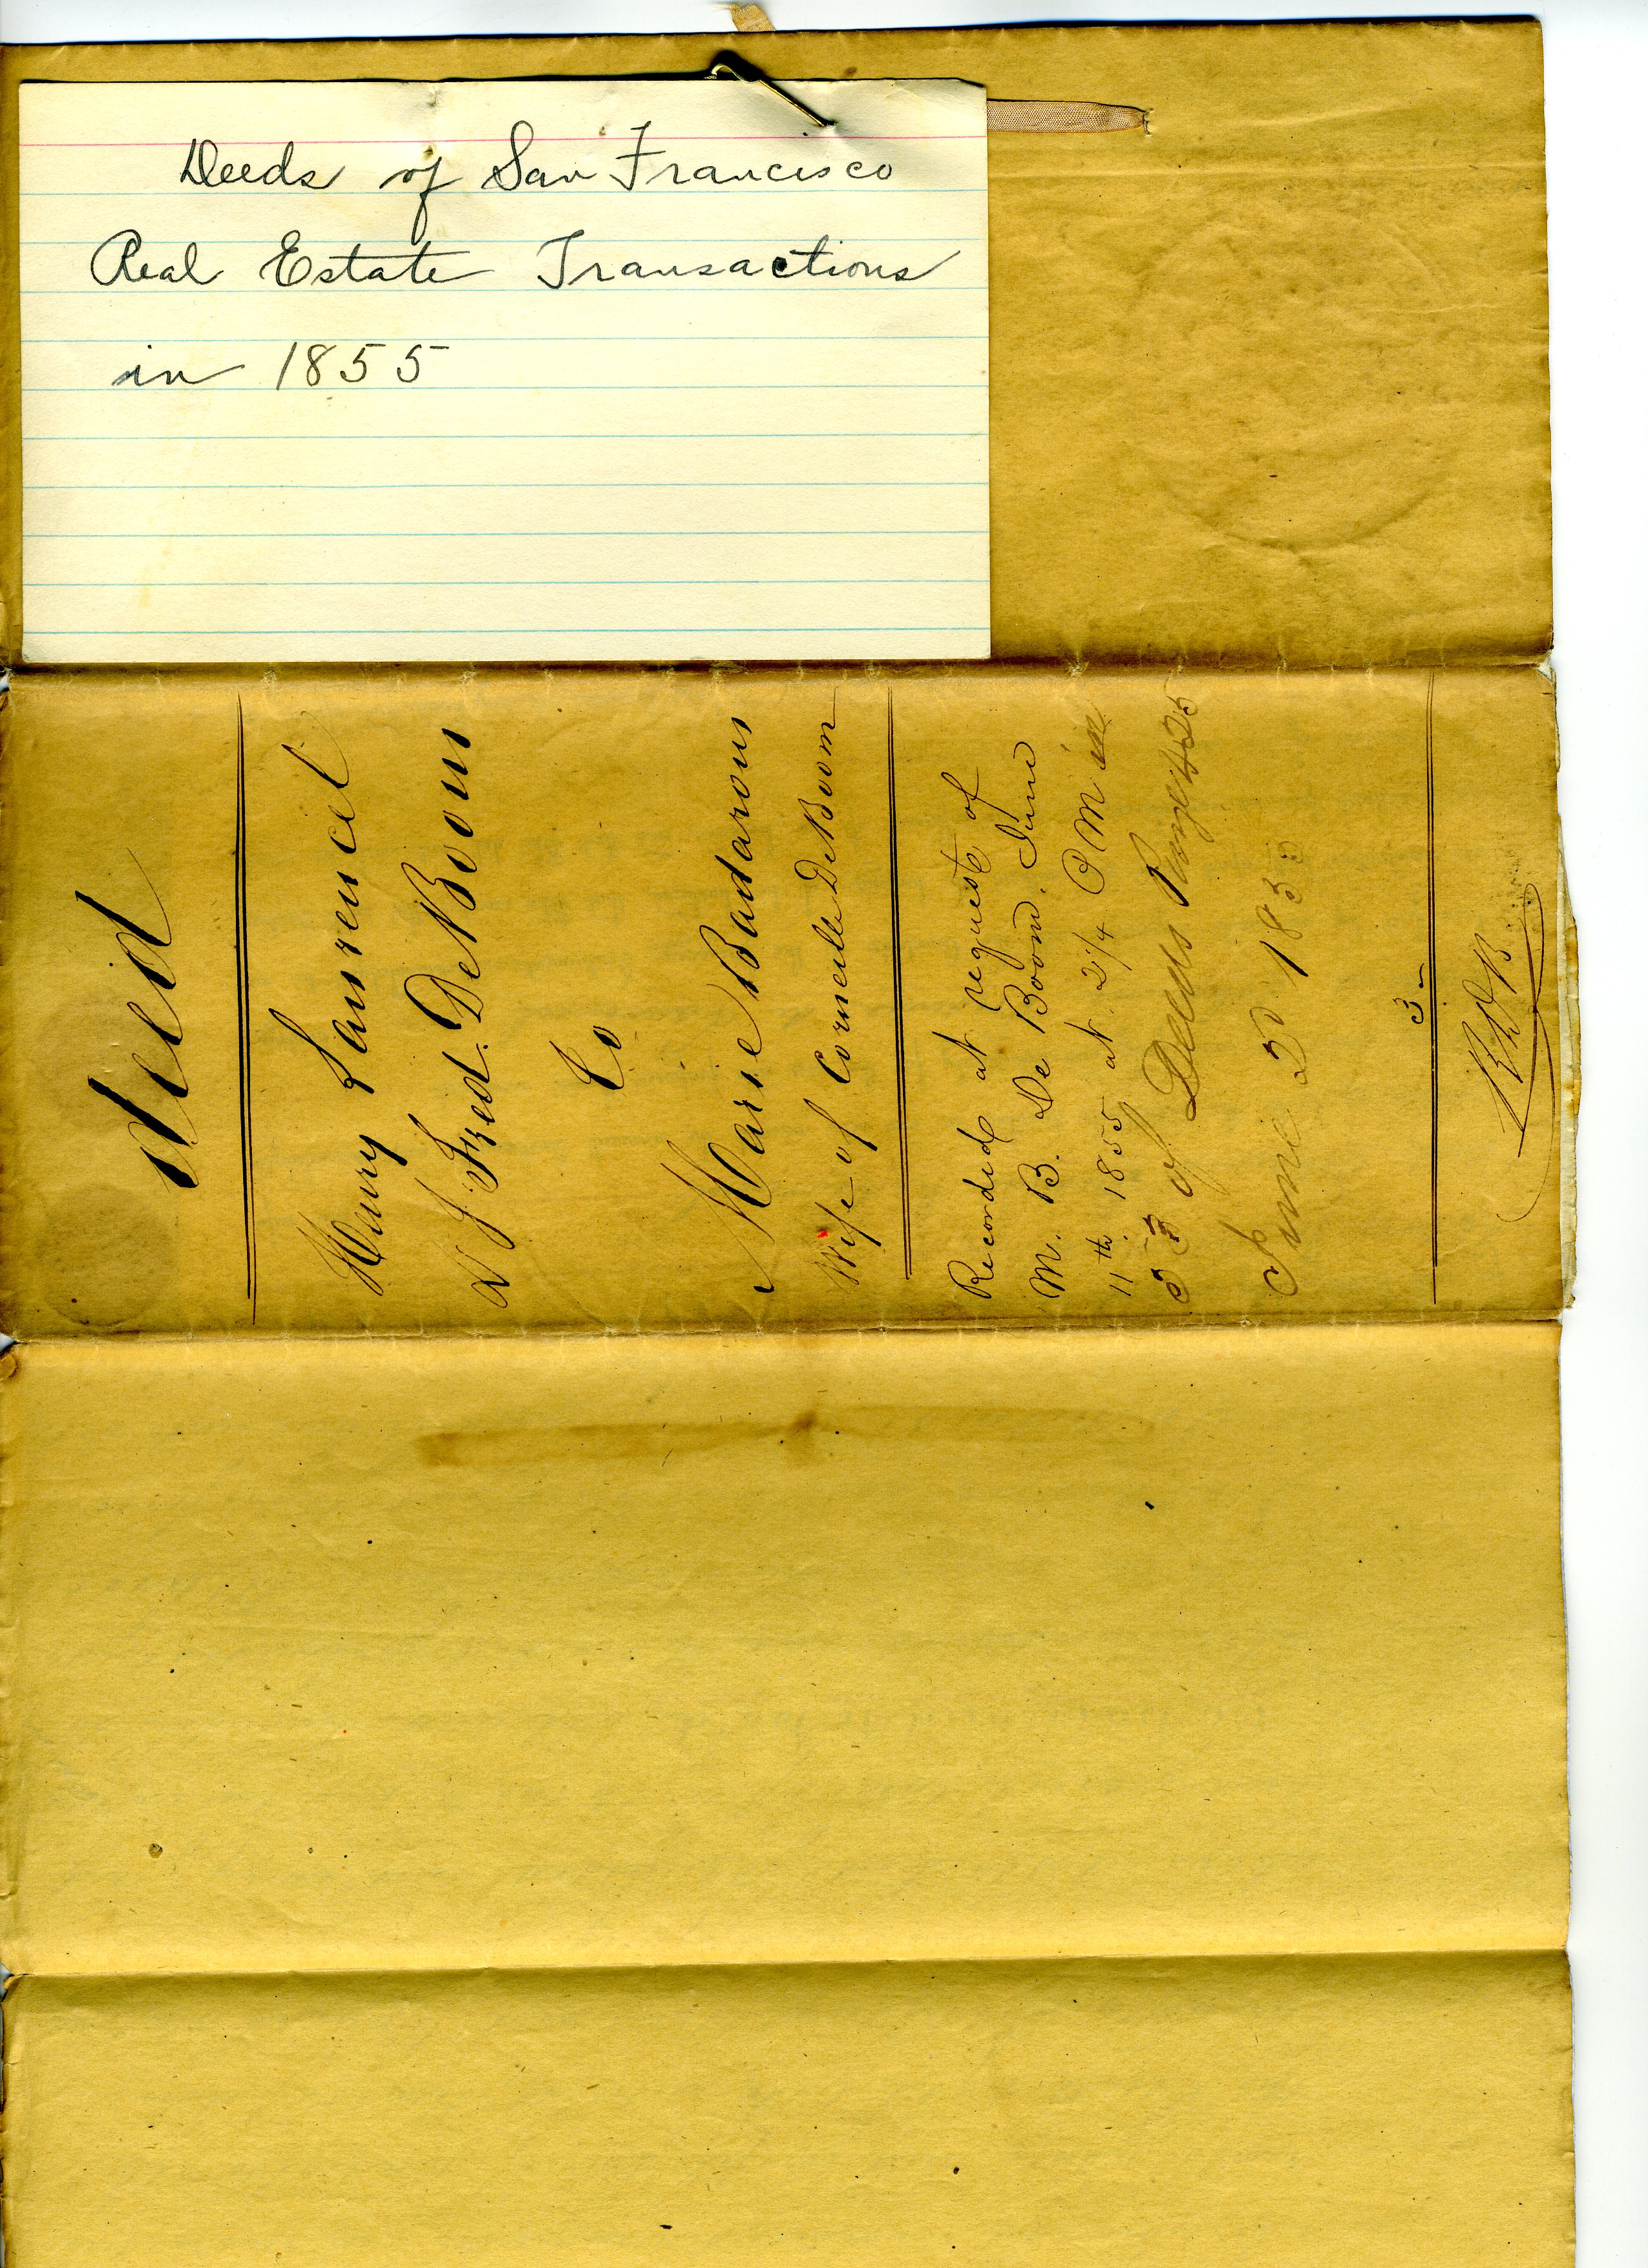 Deeds of San Francisco
Real Estate Transactions
in 1855
Deed
Henry Laurencel
& J Fred. De Boom
to
Marie Badarous
Wife of Corneille De Boom
Recorded at request of
M. B. De Boom. June
11th 1855 at 2 1/4 PM in
53 of Deeds Page 425
June 2d 1855
3-